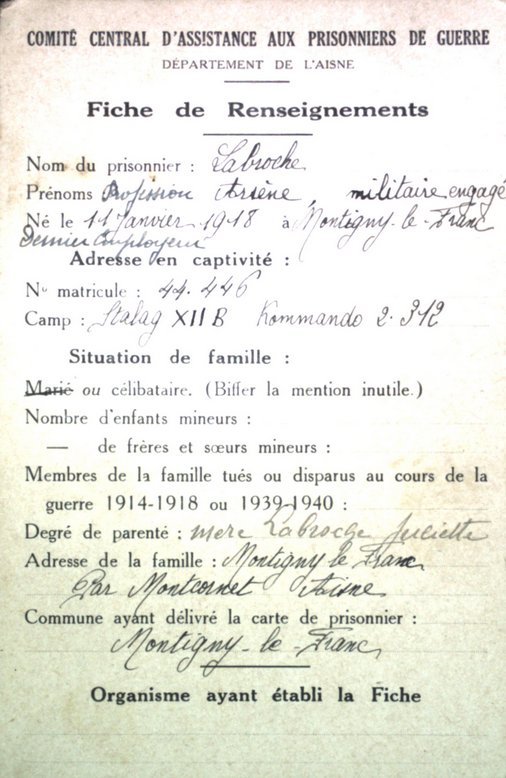 COMITÉ CENTRAL D'ASSISTANCE AUX PRISONNIERS DE GUERRE
DÉPARTEMENT DE L'AISNE
Fiche de Renseignements
Nom du prisonnier : Labroche
Prénoms Profession Arsène, militaire engagé
Né le 11 Janvier 1918 à Montigny-le-Franc
Dernier Employeur
Adresse en captivité :
No matricule : 44.446
Camp : Stalag XII B Kommando 2.312
Situation de famille :
Marié ou célibataire. (Biffer la mention inutile.)
Nombre d'enfants mineurs :
— de frères et sœurs mineurs :
Membres de la famille tués ou disparus au cours de la
guerre 1914-1918 ou 1939-1940 :
Degré de parenté : mere Labroche Juliette
Adresse de la famille : Montigny le Franc
Par Montcornet Aisne
Commune ayant délivré la carte de prisonnier :
Montigny-le-Franc
Organisme ayant établi la Fiche